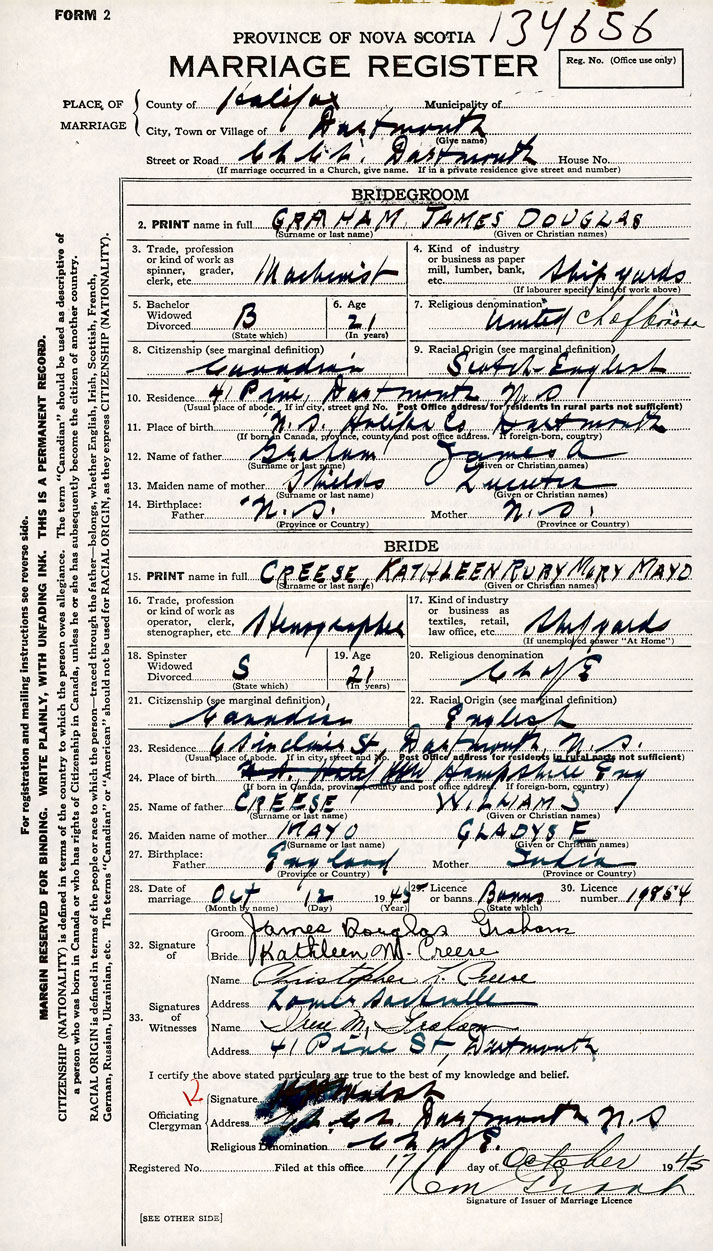 FORM 2
134656
PROVINCE OF NOVA SCOTIA
MARRIAGE REGISTER
Reg. No. (Office use only)
PLACE OF MARRIAGE
County of Halifax Municipality of
City, Town or Village of Dartmouth
(Give name)
Street or Road Ch Ch. Dartmouth House No.
(If marriage occurred in a Church, give name. If in a private residence give street and number)
BRIDEGROOM
2. PRINT name in full GRAHAM JAMES DOUGLAS
(Surname or last name) (Given or Christian names)
3. Trade, profession or kind of work as spinner, grader, clerk, etc. Machinist
4. Kind of industry or business as paper mill, lumber, bank, etc. Ship yards
(If labourer specify kind of work above)
5. Bachelor Widowed Divorced B
(State which)
6. Age 21
(In years)
7. Religious denomination United
8. Citizenship (see marginal definition) Canadian
9. Racial Origin (see marginal definition) Scotch-English
10. Residence 41 Pine, Dartmouth N S
(Usual place of abode. If in city, street and No. Post Office address for residents in rural parts not sufficient)
11. Place of birth N.S. Halifax Co Dartmouth
(If born in Canada, province, county and post office address. If foreign-born, country)
12. Name of father Graham James A
(Surname or last name) (Given or Christian names)
13. Maiden name of mother Shields
(Surname or last name) (Given or Christian names)
14. Birthplace: Father N.S. Mother N.S.
(Province or Country) (Province or Country)
BRIDE
15. PRINT name in full CREESE, KATHLEEN RUBY MARY MAYO
(Surname or last name) (Given or Christian names)
16. Trade, profession or kind of work as operator, clerk, stenographer, etc. Stenographer
17. Kind of industry or business as textiles, retail, law office, etc. Ship yards
(If unemployed answer "At Home")
18. Spinster Widowed Divorced S
(State which)
19. Age 21
(In years)
20. Religious denomination Ch of E
21. Citizenship (see marginal definition) Canadian
22. Racial Origin (see marginal definition) English
23. Residence 6 Sinclair St, Dartmouth N.S.
(Usual place of abode. If in city, street and No. Post Office address for residents in rural parts not sufficient)
24. Place of birth Hampshire Eng
(If born in Canada, province, county and post office address. If foreign-born, country)
25. Name of father CREESE WILLIAM S
(Surname or last name) (Given or Christian names)
26. Maiden name of mother MAYO GLADYS E
(Surname or last name) (Given or Christian names)
27. Birthplace: Father England Mother India
(Province or Country) (Province or Country)
28. Date of marriage Oct 12 1945
(Month by name) (Day) (Year)
29. Licence or banns Banns
(State which)
30. Licence number 19854
32. Signature of
Groom James Douglas Graham
Bride Kathleen M. Creese
33. Signatures of Witnesses
Name Christopher J. Creese
Address Lower Sackville
Name Irene M. Graham
Address 41 Pine St, Dartmouth
I certify the above stated particulars are true to the best of my knowledge and belief.
Officiating Clergyman
Signature Walsh
Address Ch. Ch. Dartmouth N S
Religious Denomination Ch of E.
Registered No. Filed at this office 17 day of October 1945
Signature of Issuer of Marriage Licence
[SEE OTHER SIDE]
For registration and mailing instructions see reverse side.
MARGIN RESERVED FOR BINDING. WRITE PLAINLY, WITH UNFADING INK. THIS IS A PERMANENT RECORD.
CITIZENSHIP (NATIONALITY) is defined in terms of the country to which the person owes allegiance. The term "Canadian" should be used as descriptive of
a person who was born in Canada or who has rights of Citizenship in Canada, unless he or she has subsequently become the citizen of another country.
RACIAL ORIGIN is defined in terms of the people or race to which the person—traced through the father—belongs, whether English, Irish, Scottish, French,
German, Russian, Ukrainian, etc. The terms "Canadian" or "American" should not be used for RACIAL ORIGIN, as they express CITIZENSHIP (NATIONALITY).